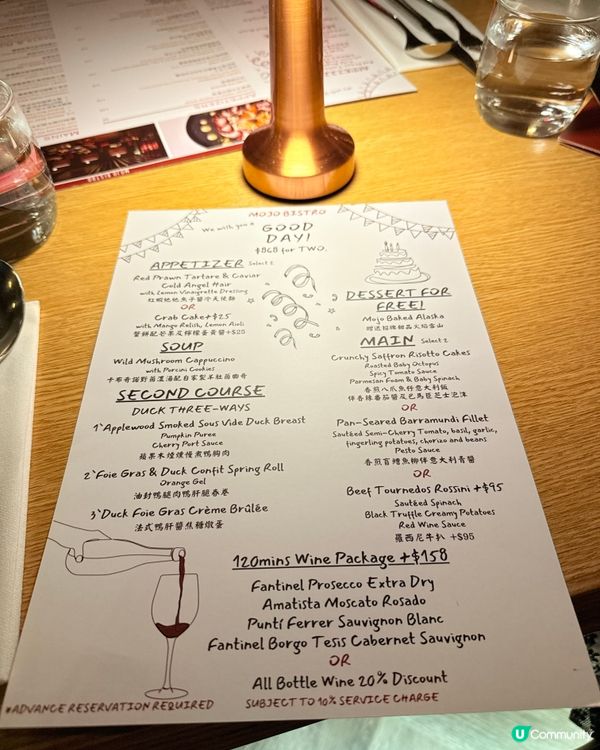 MOJO BISTRO
We wish you a
GOOD
DAY!
$868 for TWO.
APPETIZER Select 2
Red Prawn Tartare & Caviar
Cold Angel Hair
with Lemon Vinaigrette Dressing
OR
Crab Cake+$25
with Mango Relish, Lemon Aioli
蟹餅配芒果及檸檬蛋黃醬+$25
SOUP
Wild Mushroom Cappuccino
with Porcini Cookies
SECOND COURSE
DUCK THREE-WAYS
1`Applewood Smoked Sous Vide Duck Breast
Pumpkin Puree
Cherry Port Sauce
蘋果木煙燻慢煮鴨胸肉
2`Foie Gras & Duck Confit Spring Roll
Orange Gel
油封鴨腿肉鴨肝腿春卷
3`Duck Foie Gras Crème Brûlée
法式鴨肝醬焦糖燉蛋
DESSERT FOR
FREE!
Mojo Baked Alaska
贈送招牌甜品火焰雪山
MAIN Select 2
Crunchy Saffron Risotto Cakes
Roasted Baby Octopus
Spicy Tomato Sauce
Parmesan Foam & Baby Spinach
香煎八爪魚仔意大利飯
伴香辣番茄醬及巴馬臣芝士泡沫
OR
Pan-Seared Barramundi Fillet
Sautéed Semi-Cherry Tomato, basil, garlic,
fingerling potatoes, chorizo and beans
Pesto Sauce
香煎盲鰽魚柳伴意大利青醬
OR
Beef Tournedos Rossini +$95
Sautéed Spinach
Black Truffle Creamy Potatoes
Red Wine Sauce
羅西尼牛扒 +$95
120mins Wine Package +$158
Fantinel Prosecco Extra Dry
Amatista Moscato Rosado
Puntí Ferrer Sauvignon Blanc
Fantinel Borgo Tesis Cabernet Sauvignon
OR
All Bottle Wine 20% Discount
*ADVANCE RESERVATION REQUIRED
SUBJECT TO 10% SERVICE CHARGE
MAINS
MOJO BISTRO
U Community